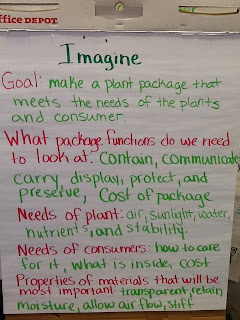 Office DEPOT
Imagine
Goal: make a plant package that
meets the needs of the plants
and consumer.
What package functions do we need
to look at: Contain, communicate
carry, display, protect, and
preserve, Cost of package
Needs of plant: air, sunlight, water,
nutrients, and stability.
Needs of consumers: how to care
for it, what is inside, cost
Properties of materials that will be
most important: transparent, retain
moisture, allow air flow, stiff